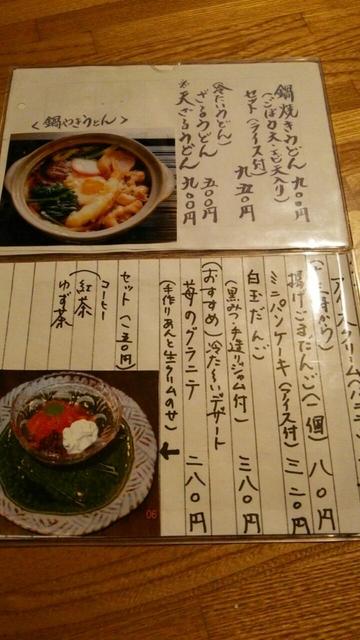 鍋焼きうどん 九〇〇円
(ごぼう天・えび天入り)
セット(アイス付) 九五〇円
(冷たいうどん)
ざるうどん 五〇〇円
※天ざるうどん 九〇〇円
〈鍋やきうどん〉
揚げごまだんご(一個) 八〇円
ミニパンケーキ(アイス付) 三二〇円
白玉だんご 三八〇円
(黒みつ・手造りジャム付)
(おすすめ)冷た〜いデザート
苺のグラニテ 二八〇円
(手作りあんと生クリームのせ)
セット(二五〇円)
コーヒー
紅茶
ゆず茶
06